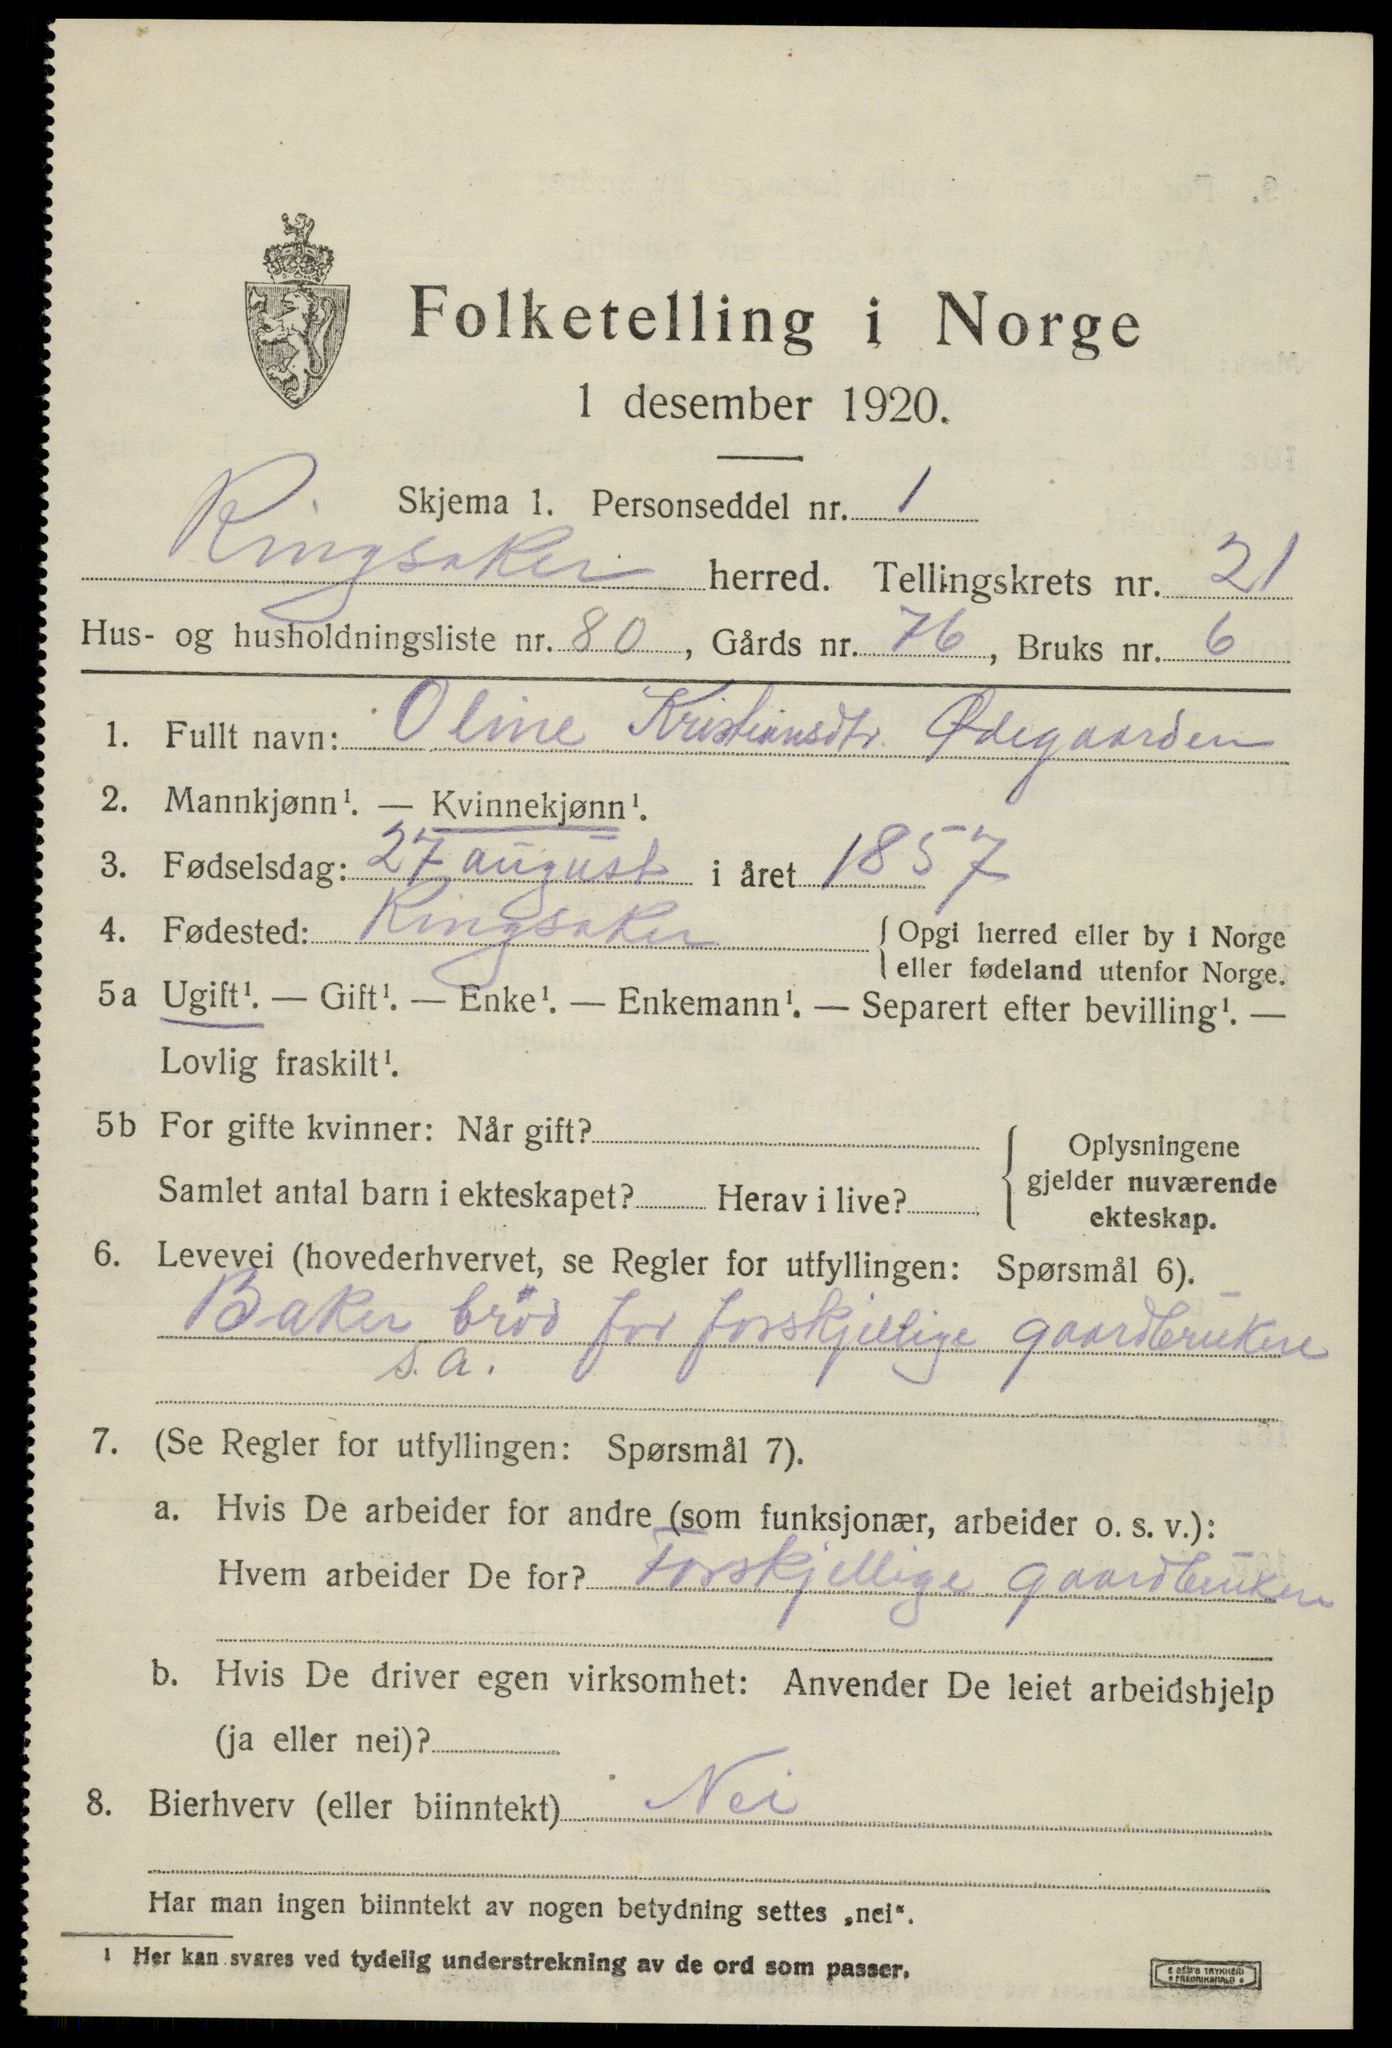 Folketelling i Norge
1 desember 1920.
Skjema 1. Personseddel nr. 1
Ringsaker herred. Tellingskrets nr. 21
Hus- og husholdningsliste nr. 80, Gårds nr. 76, Bruks nr. 6
1. Fullt navn: Oline Kristiansdtr. Ødegaarden
2. Mannkjønn¹. — Kvinnekjønn¹.
3. Fødselsdag: 27 august i året 1857
4. Fødested: Ringsaker { Opgi herred eller by i Norge
eller fødeland utenfor Norge.
5a Ugift¹. — Gift¹. — Enke¹. — Enkemann¹. — Separert efter bevilling¹. —
Lovlig fraskilt¹.
5b For gifte kvinner: Når gift?
Samlet antal barn i ekteskapet? Herav i live?
{ Oplysningene
gjelder nuværende
ekteskap.
6. Levevei (hovederhvervet, se Regler for utfyllingen: Spørsmål 6).
Baker brød for forskjellige gaardbrukere
s.a.
7. (Se Regler for utfyllingen: Spørsmål 7).
a. Hvis De arbeider for andre (som funksjonær, arbeider o. s. v.):
Hvem arbeider De for? Forskjellige gaardbrukere
b. Hvis De driver egen virksomhet: Anvender De leiet arbeidshjelp
(ja eller nei)?
8. Bierhverv (eller biinntekt) Nei
Har man ingen biinntekt av nogen betydning settes „nei“.
1 Her kan svares ved tydelig understrekning av de ord som passer.